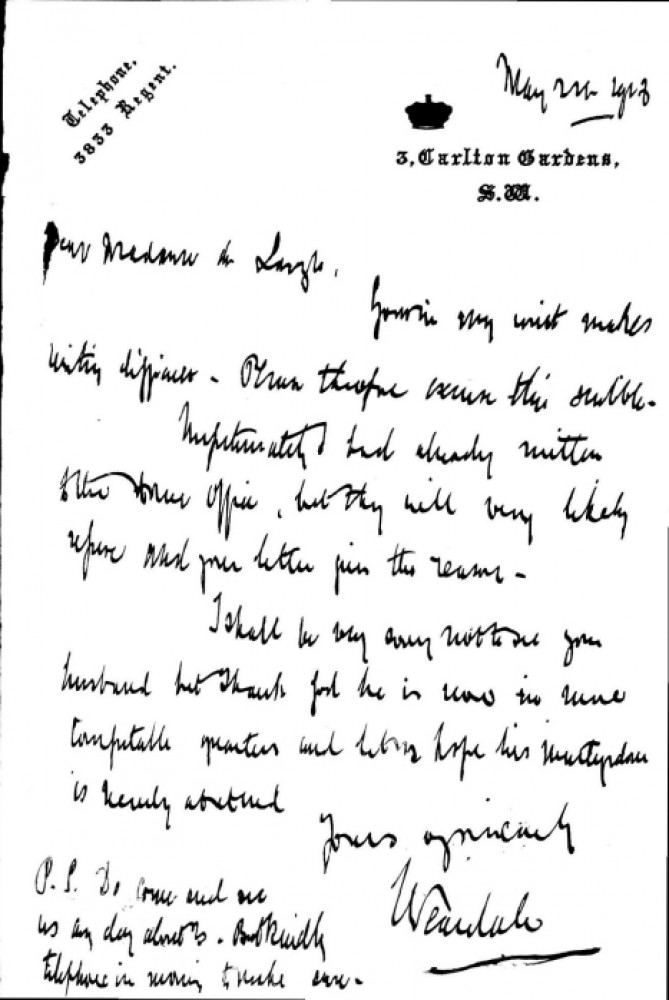 Telephone.
3833 Regent.
May 1913
3, Carlton Gardens,
S.W.
Dear Madame
my wrist makes
writing difficult - Please therefore excuse this scribble -
Unfortunately I had already written
to the Home Office, but they will very likely
refuse and your letter gives the reason -
I shall be very sorry not to see your
husband but Thank God he is now in more
comfortable quarters and let us hope his martyrdom
is nearly at end
Yours sincerely
Weardale
P.S. Do come and see
us any day about 5 - But kindly
telephone in morning to make sure -